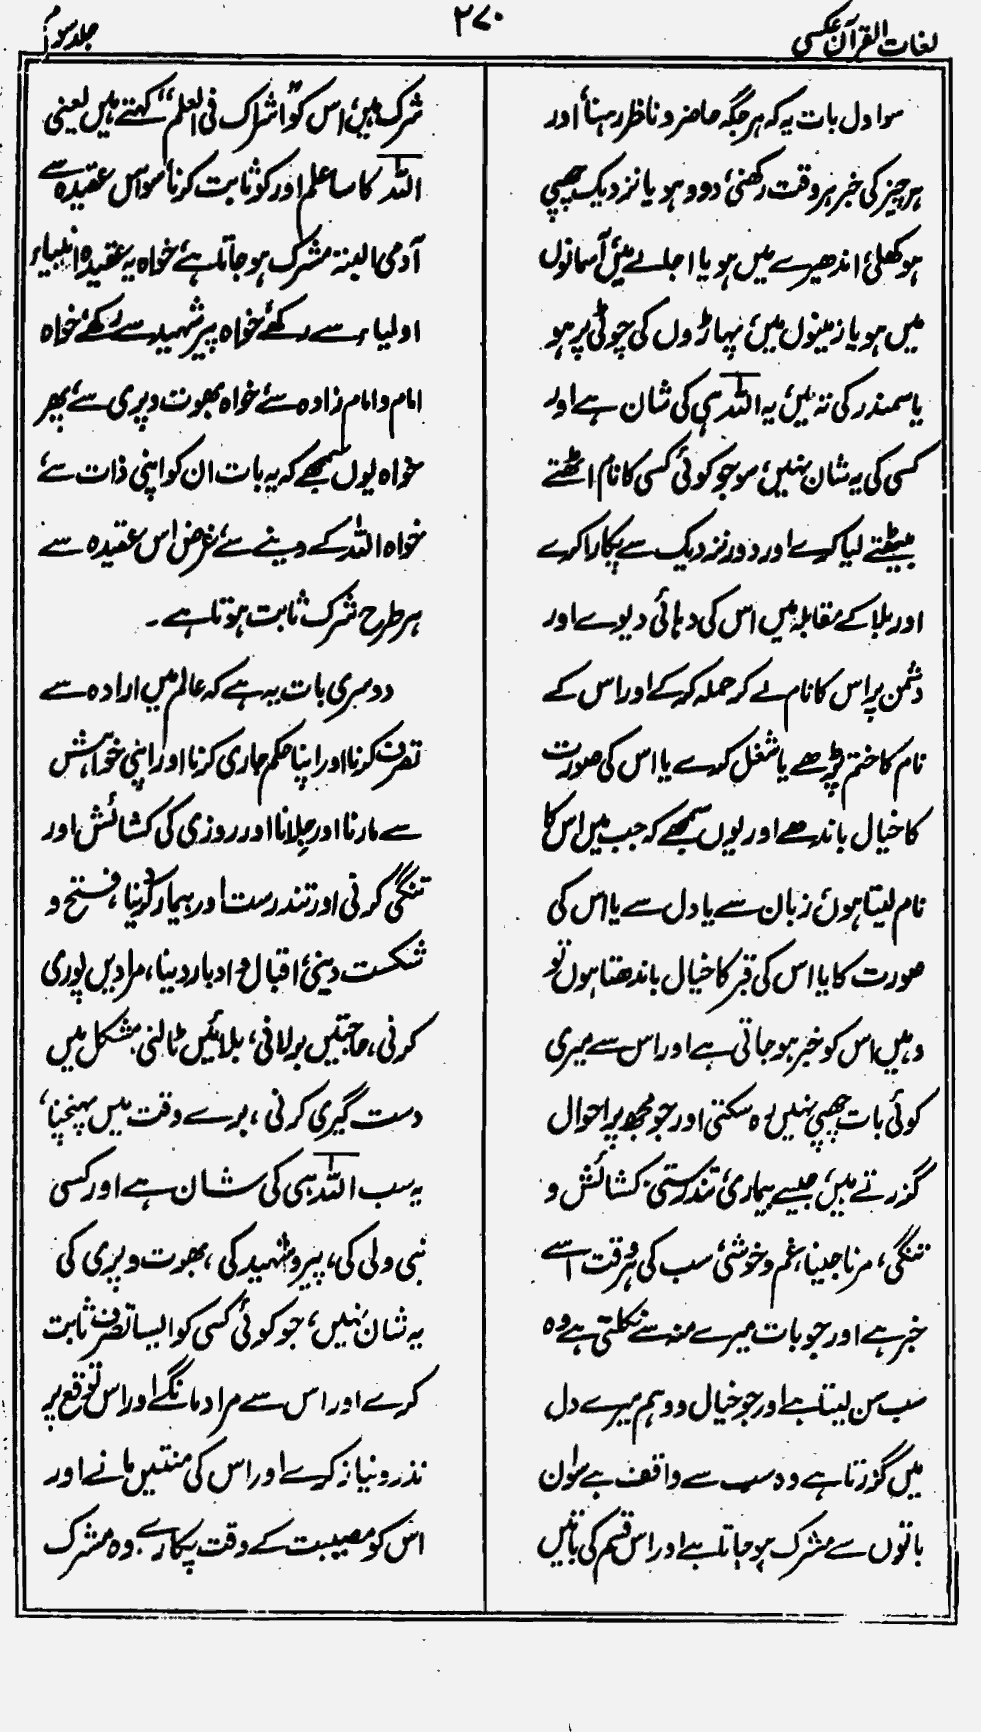 لغات القرآن عکسی
۲۷۰
جلد سوم
سو اول بات یہ کہ ہر جگہ حاضر و ناظر رہنا، اور
ہر چیز کی خبر ہر وقت رکھنی، دور ہو یا نزدیک چھپی
ہو کھلی، اندھیرے میں ہو یا اجالے میں، آسمانوں
میں ہو یا زمینوں میں، پہاڑوں کی چوٹی پر ہو
یا سمندر کی تہ میں، یہ اللہ ہی کی شان ہے اور
کسی کی یہ شان نہیں، سو جو کوئی کسی کا نام اٹھتے
بیٹھتے لیا کرے اور دور نزدیک سے پکارا کرے
اور بلا کے مقابلہ میں اس کی دہائی دیوے اور
دشمن پر اس کا نام لے کر حملہ کرے اور اس کے
نام کا ختم پڑھے یا شغل کرے یا اس کی صورت
کا خیال باندھے اور یوں سمجھے کہ جب میں اس کا
نام لیتا ہوں، زبان سے یا دل سے یا اس کی
صورت کا یا اس کی قبر کا خیال باندھتا ہوں تو
وہیں اس کو خبر ہو جاتی ہے اور اس سے میری
کوئی بات چھپی نہیں رہ سکتی اور جو مجھ پر احوال
گزرتے ہیں، جیسے بیماری، تندرستی، کشائش و
تنگی، مرنا جینا، غم و خوشی، سب کی ہر وقت اسے
خبر ہے اور جو بات میرے منہ سے نکلتی ہے وہ
سب سن لیتا ہے اور جو خیال و وہم میرے دل
میں گزرتا ہے وہ سب سے واقف ہے سو ان
باتوں سے مشرک ہو جاتا ہے اور اس قسم کی باتیں
شرک ہیں، اس کو "اشراک فی العلم" کہتے ہیں یعنی
اللہ کا سا علم اور کو ثابت کرنا، سو اس عقیدہ سے
آدمی البتہ مشرک ہو جاتا ہے، خواہ یہ عقیدہ انبیاء
اولیاء سے رکھے، خواہ پیر شہید سے رکھے، خواہ
امام و امام زادہ سے، خواہ بھوت و پری سے، پھر
خواہ یوں سمجھے کہ یہ بات ان کو اپنی ذات سے،
خواہ اللہ کے دینے سے، غرض اس عقیدہ سے
ہر طرح شرک ثابت ہوتا ہے۔
دوسری بات یہ ہے کہ عالم میں ارادہ سے
تصرف کرنا اور اپنا حکم جاری کرنا اور اپنی خواہش
سے مارنا اور جلانا اور روزی کی کشائش اور
تنگی کرنی اور تندرست اور بیمار کردینا، فتح و
شکست دینی، اقبال و ادبار دینا، مرادیں پوری
کرنی، حاجتیں بر لانی، بلائیں ٹالنی مشکل میں
دست گیری کرنی، برے وقت میں پہنچنا،
یہ سب اللہ ہی کی شان ہے اور کسی
نبی ولی کی، پیر و شہید کی، بھوت و پری کی
یہ شان نہیں، جو کوئی کسی کو ایسا تصرف ثابت
کرے اور اس سے مراد مانگے اور اس توقع پر
نذر و نیاز کرے اور اس کی منتیں مانے اور
اس کو مصیبت کے وقت پکارے وہ مشرک